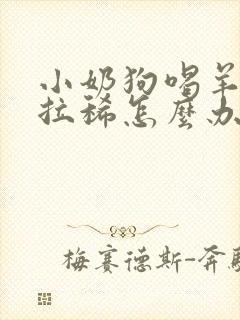 小奶狗喝羊
拉稀怎麼办
梅赛德斯-奔